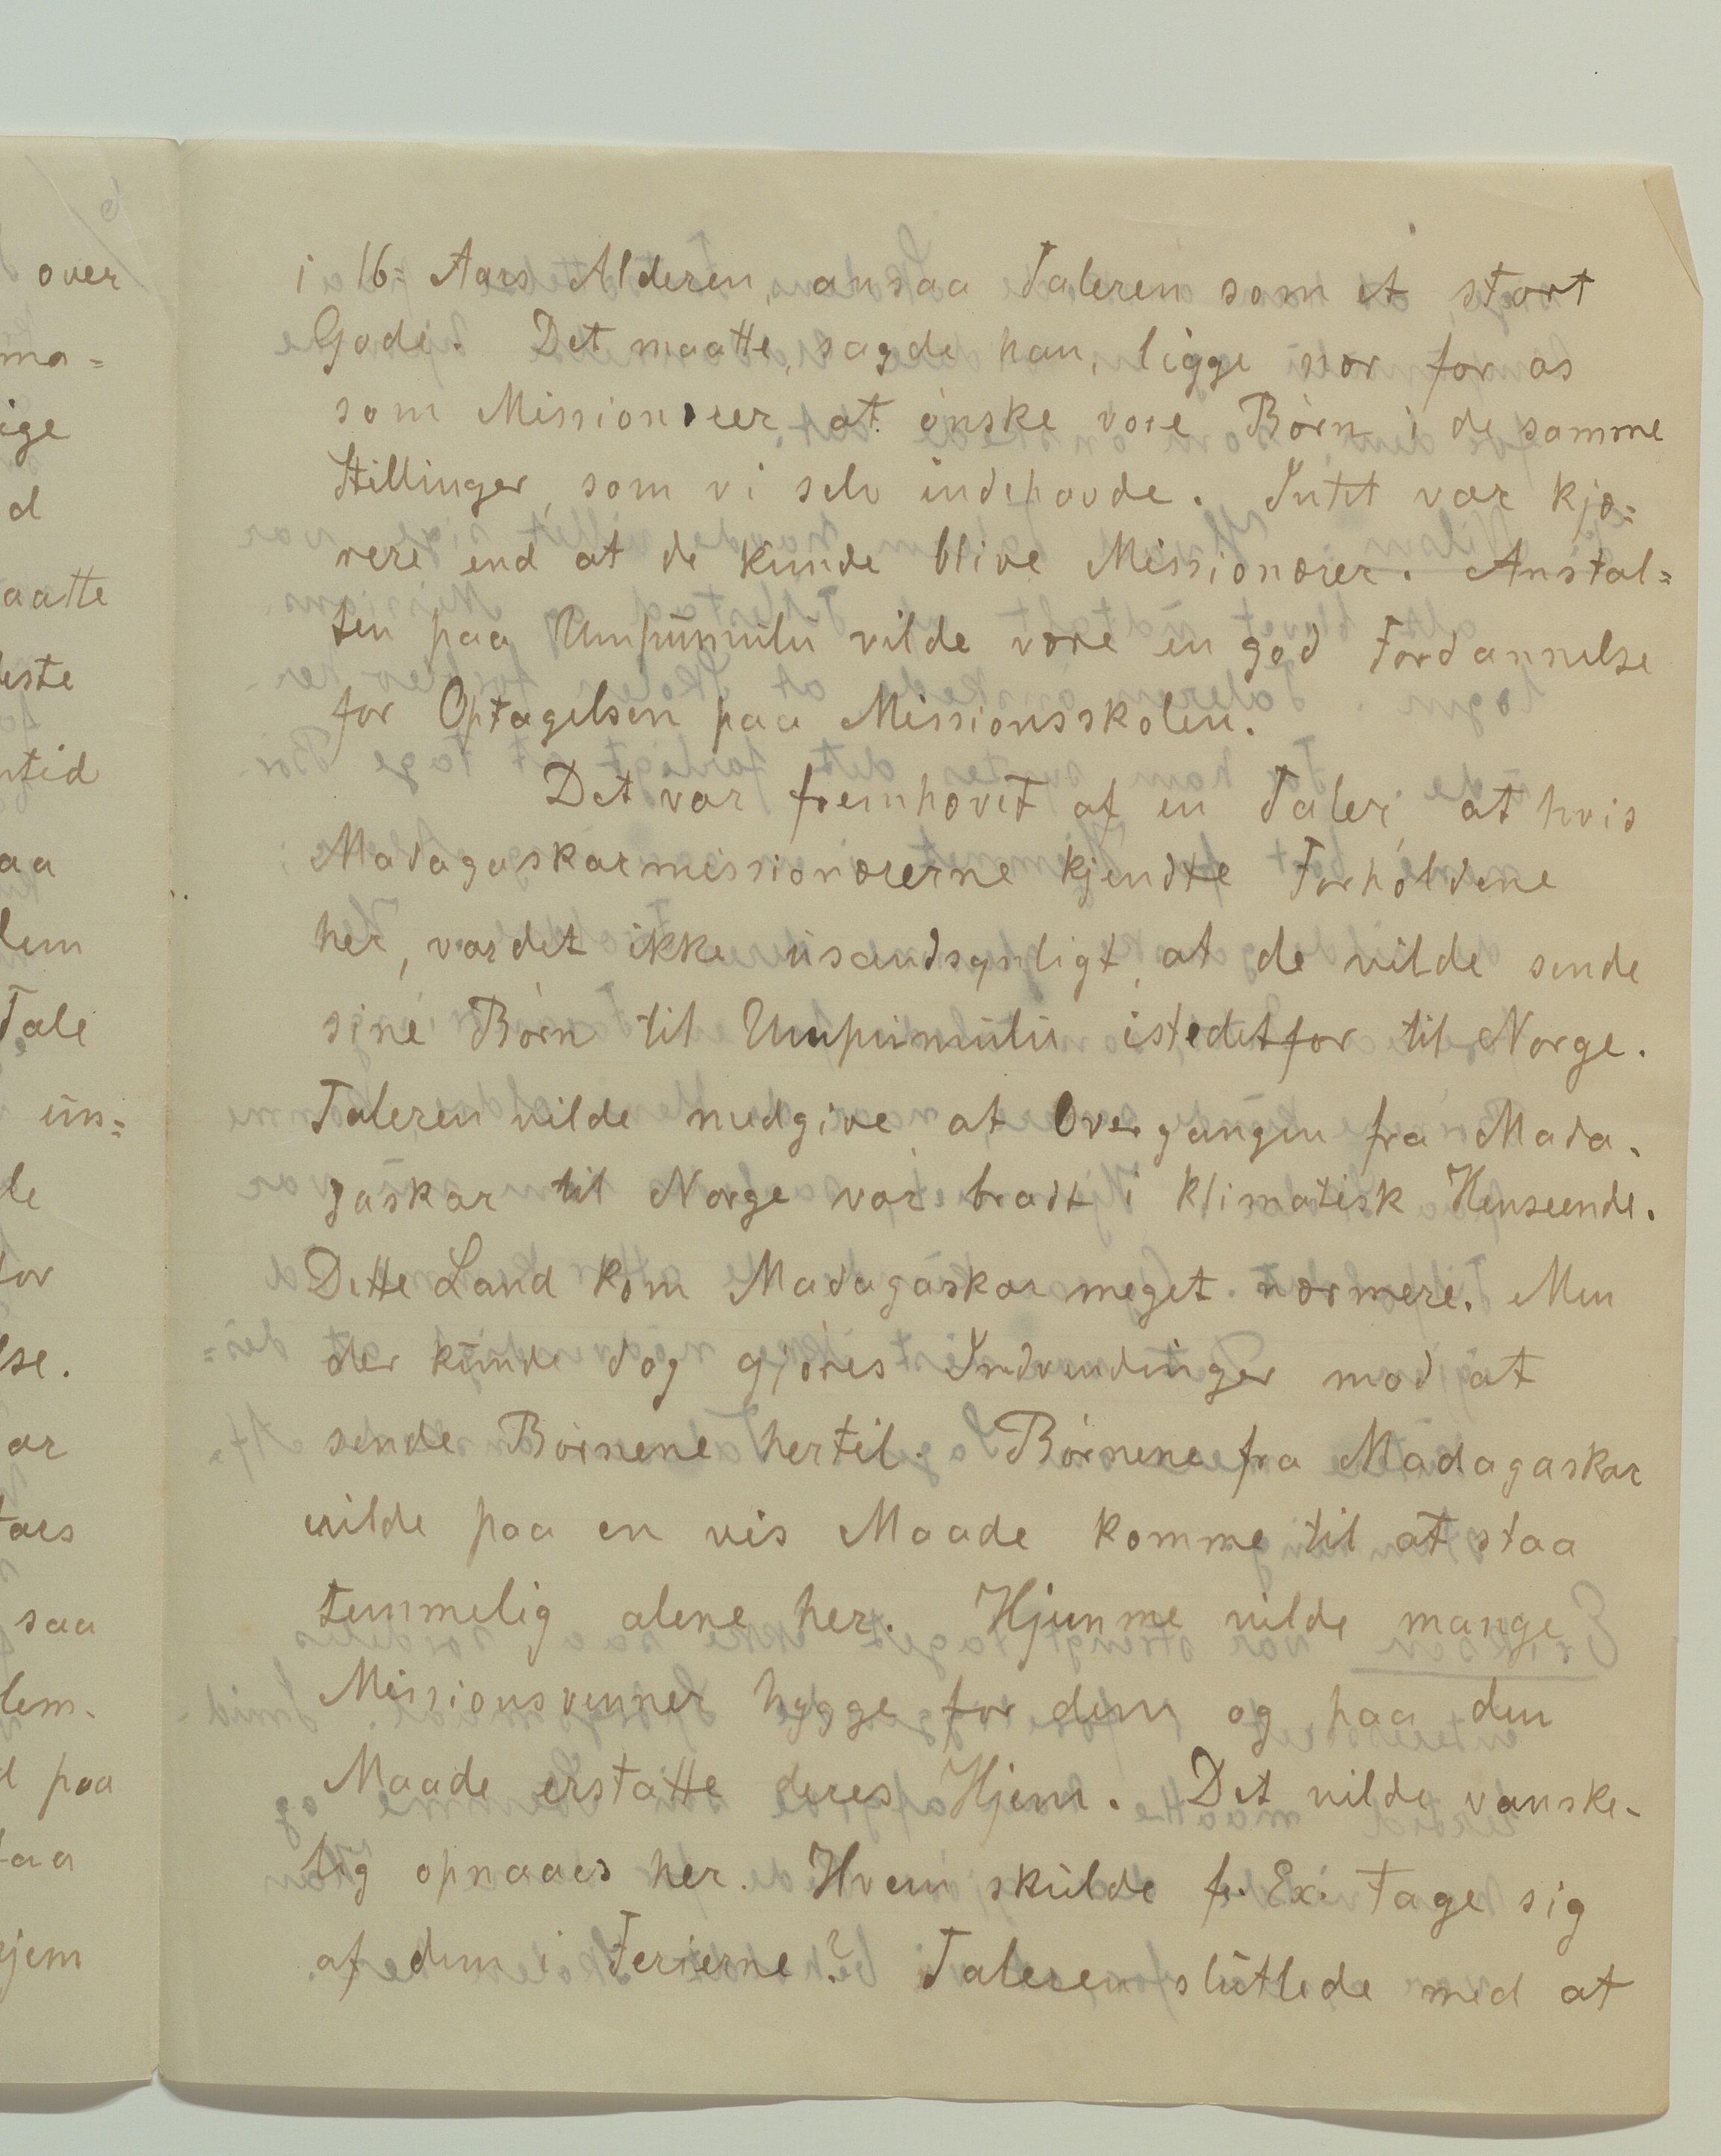 i 16= Aars Alderen, ansaa Taleren som et stort
Gode. Det maatte, sagde han, ligge nær for os
som Missionærer, at ønske vore Børn i de samme
Stillinger, som vi selv indehavde. Intet var kjæ=
rere end at de kunde blive Missionærer. Anstal=
ten paa Umpumulu vilde være en god Fordannelse
for Optagelsen paa Missionsskolen.
Det var fremhævet af en Taler, at hvis
Madagaskarmissionærerne kjendte Forholdene
her, var det ikke usandsynligt, at de vilde sende
sine Børn til Umpumulu istedetfor til Norge.
Taleren vilde medgive at Overgangen fra Mada-
gaskar til Norge var bradt i klimatisk Henseende.
Dette Land kom Madagaskar meget nærmere. Men
der kunde dog gjøres Indvendinger mod at
sende Børnene hertil. Børnene fra Madagaskar
vilde paa en vis Maade komme til at staa
temmelig alene her. Hjemme vilde mange
Missionsvenner hygge for dem og paa den
Maade erstatte deres Hjem. Det vilde vanske-
lig opnaaes her. Hvem skulde f. Ex. tage sig
af dem i Ferierne? Taleren sluttede med at
over
ma=
ige
d
aatte
este
ntid
aa
lem
Tale
un=
le
for
lse.
ar
ars
saa
lem-
d paa
taa
jem